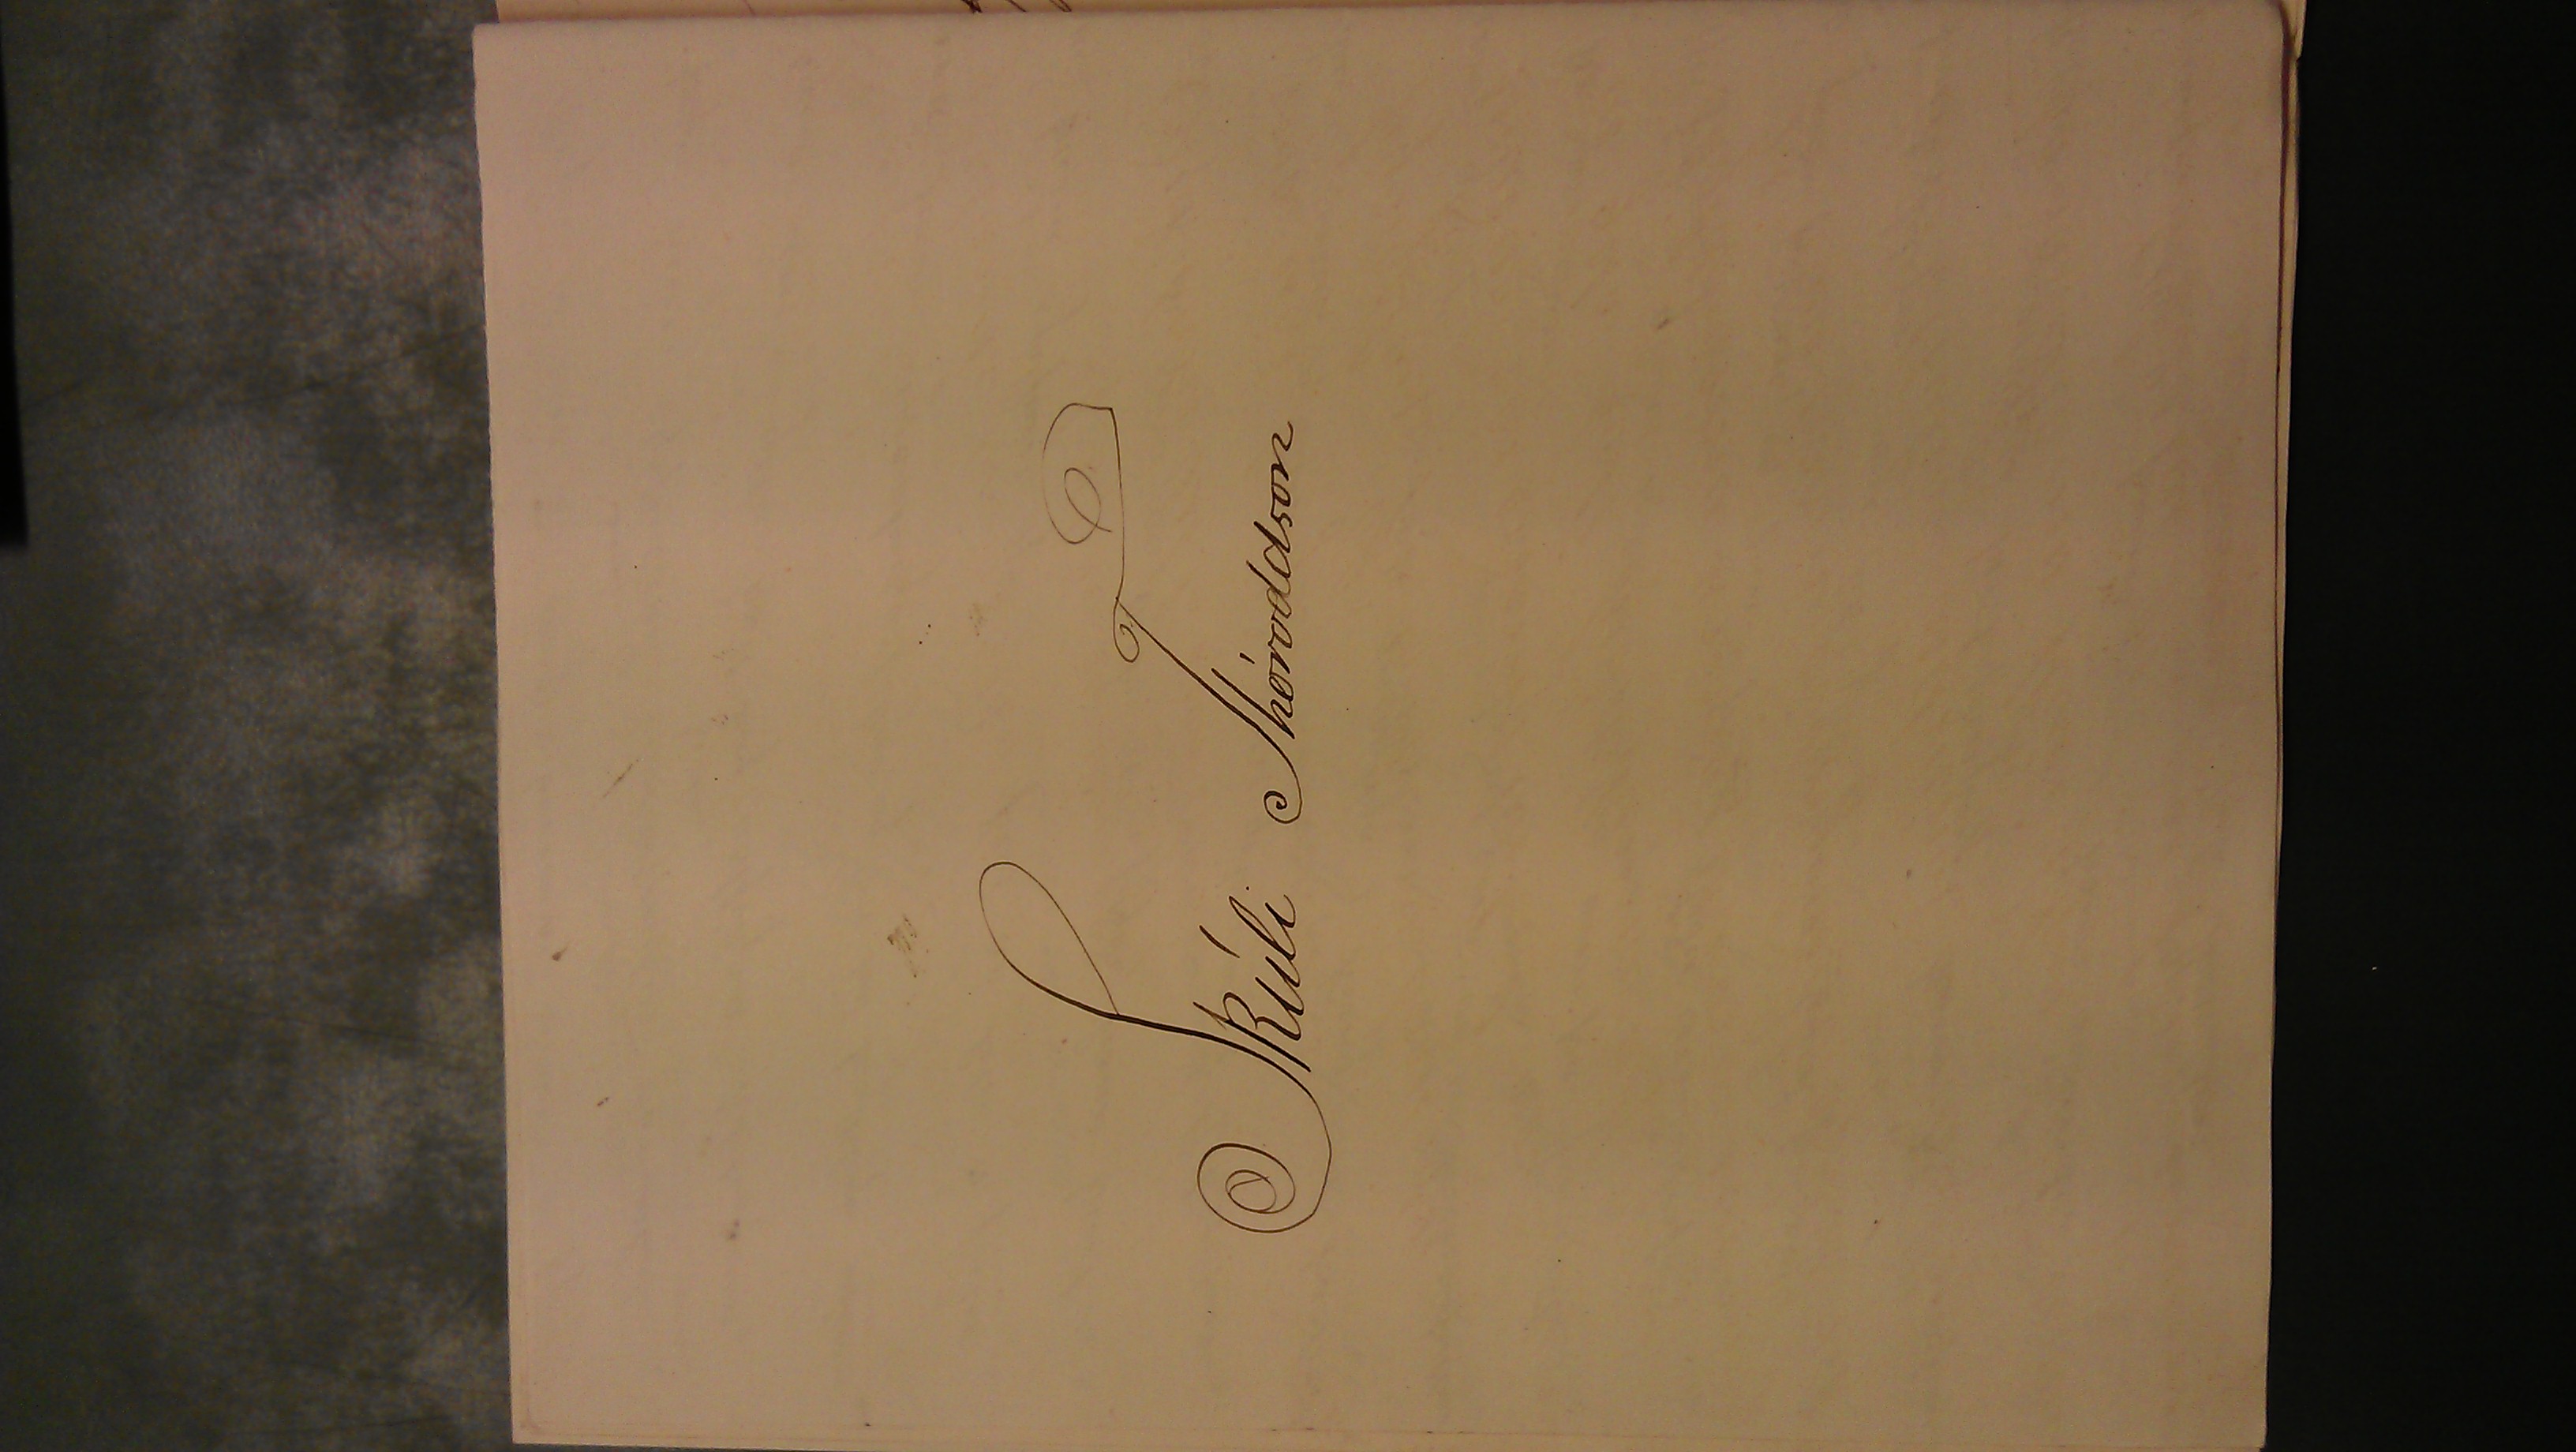 Skúli Thóroddson